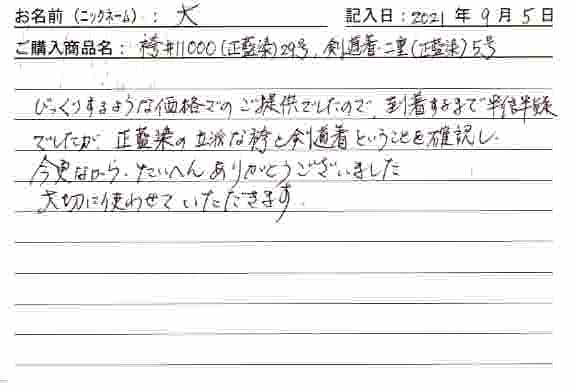 お名前（ニックネーム）：大 記入日：2021年9月5日
ご購入商品名：袴#11000（正藍染）29号、剣道着・二重（正藍染）5号
びっくりするような価格でのご提供でしたので、到着するまで半信半疑
でしたが、正藍染の立派な袴と剣道着ということを確認し、
今更ながら、たいへんありがとうございました
大切に使わせていただきます。